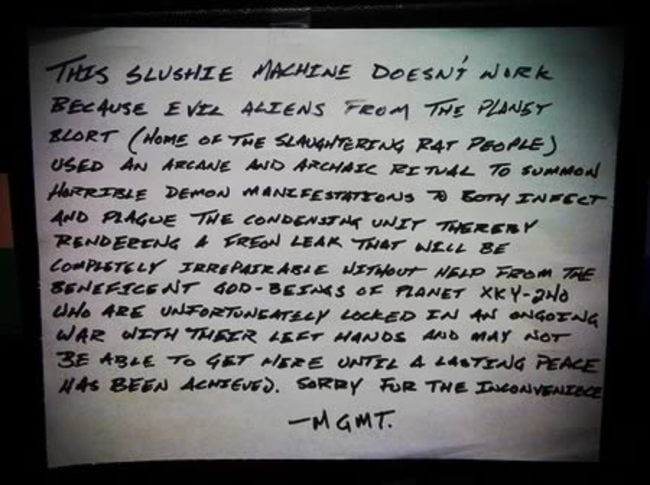 THIS SLUSHIE MACHINE DOESN'T WORK
BECAUSE EVIL ALIENS FROM THE PLANET
BLORT (HOME OF THE SLAUGHTERING RAT PEOPLE)
USED AN ARCANE AND ARCHAIC RITUAL TO SUMMON
HORRIBLE DEMON MANIFESTATIONS TO BOTH INFECT
AND PLAGUE THE CONDENSING UNIT THEREBY
RENDERING A FREON LEAK THAT WILL BE
COMPLETELY IRREPAIRABLE WITHOUT HELP FROM THE
BENEFICENT GOD-BEINGS OF PLANET XKY-2HO
WHO ARE UNFORTUNEATELY LOCKED IN AN ONGOING
WAR WITH THEIR LEFT HANDS AND MAY NOT
BE ABLE TO GET HERE UNTIL A LASTING PEACE
HAS BEEN ACHIEVED. SORRY FUR THE INCONVENIECE
—MGMT.